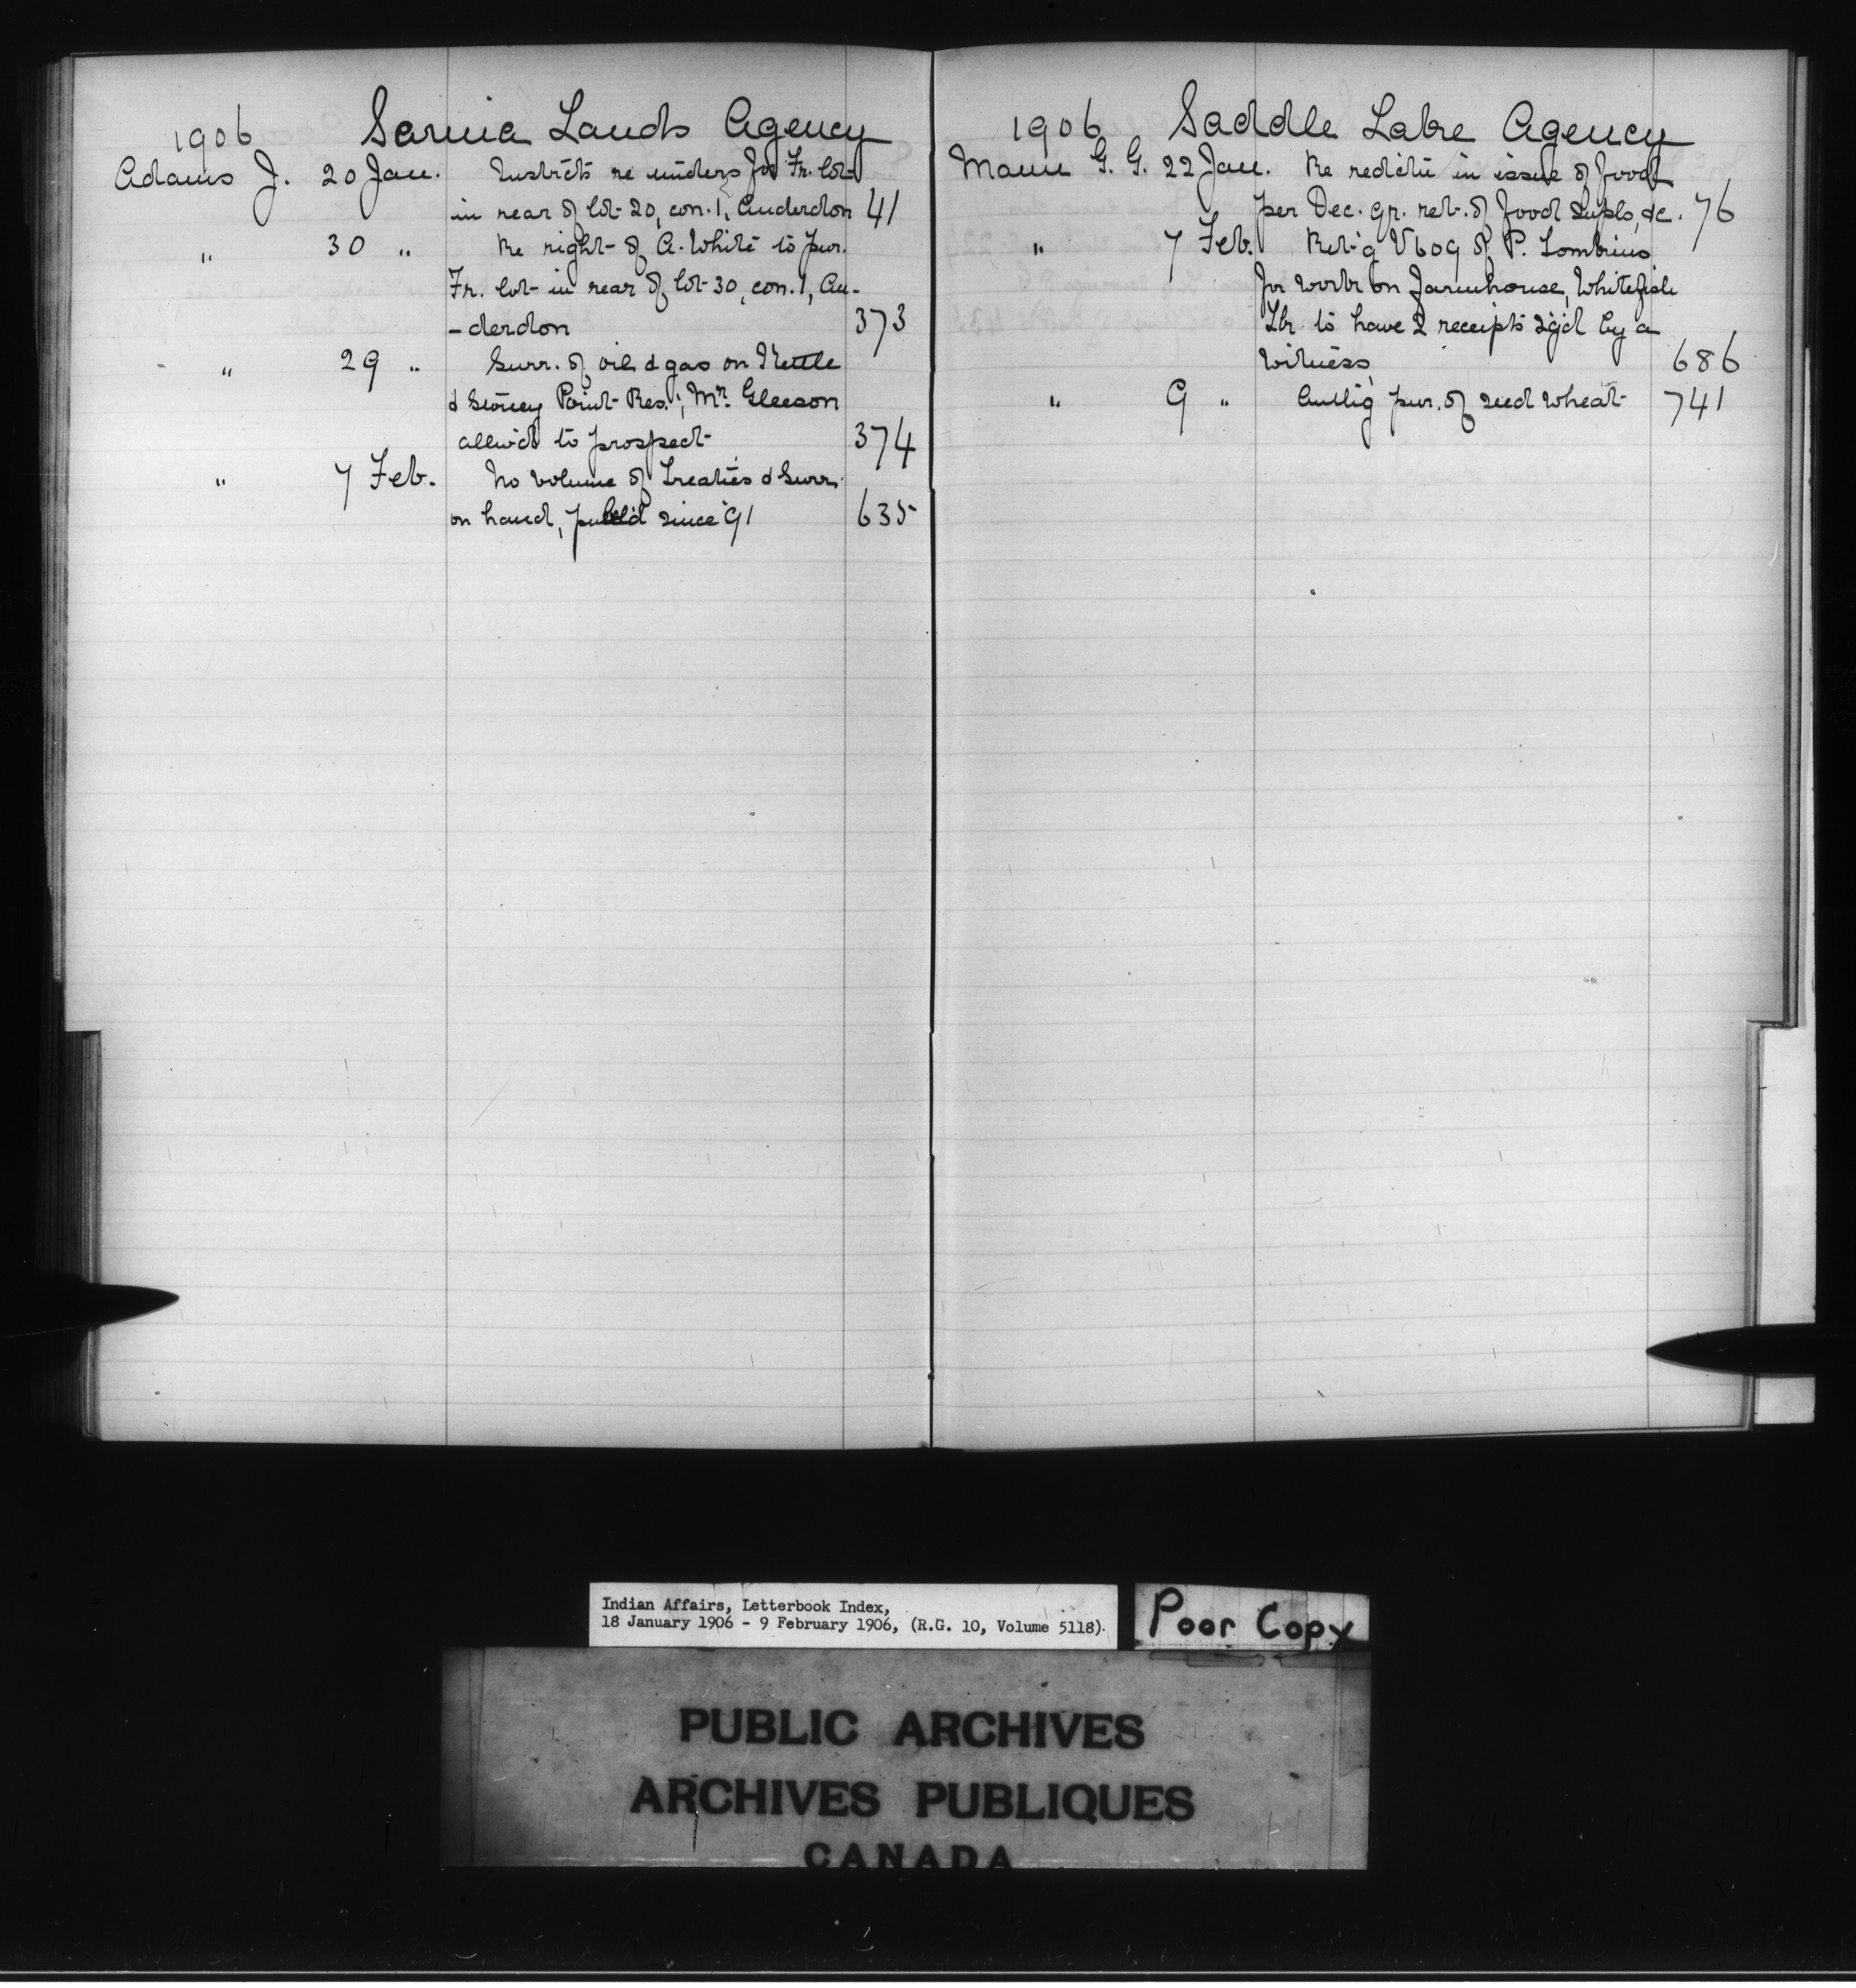 1906 Sarnia Lands Agency
Adams J. 20 Jan. Instricts re tinders for Fr. lot
in rear of lot 20, con. 1, Anderdon 41
" 30 " Re right of A. White to pur.
Fr. lot in rear of lot 30, con. 1, An-
-derdon 373
" 29 " Surr. of oil & gas on Kettle
& Stoney Point Res.; Mr. Gleeson
allw'd to prospect 374
" 7 Feb. No volume of Treaties & Surr.
on hand, publ'd since '91 635
1906 Saddle Lake Agency
Mann G. G. 22 Jan. Re redct'n in issue of food
per Dec. qr. ret. of food supls, &c. 76
" 7 Feb. Ret'g V609 of P. Tombrius
for work on Farmhouse, Whitefish
Lk. to have 2 receipts sg'd by a
witness 686
" 9 " Auth'g pur. of seed wheat 741
Indian Affairs, Letterbook Index,
18 January 1906 - 9 February 1906, (R.G. 10, Volume 5118).
Poor Copy
PUBLIC ARCHIVES
ARCHIVES PUBLIQUES
CANADA